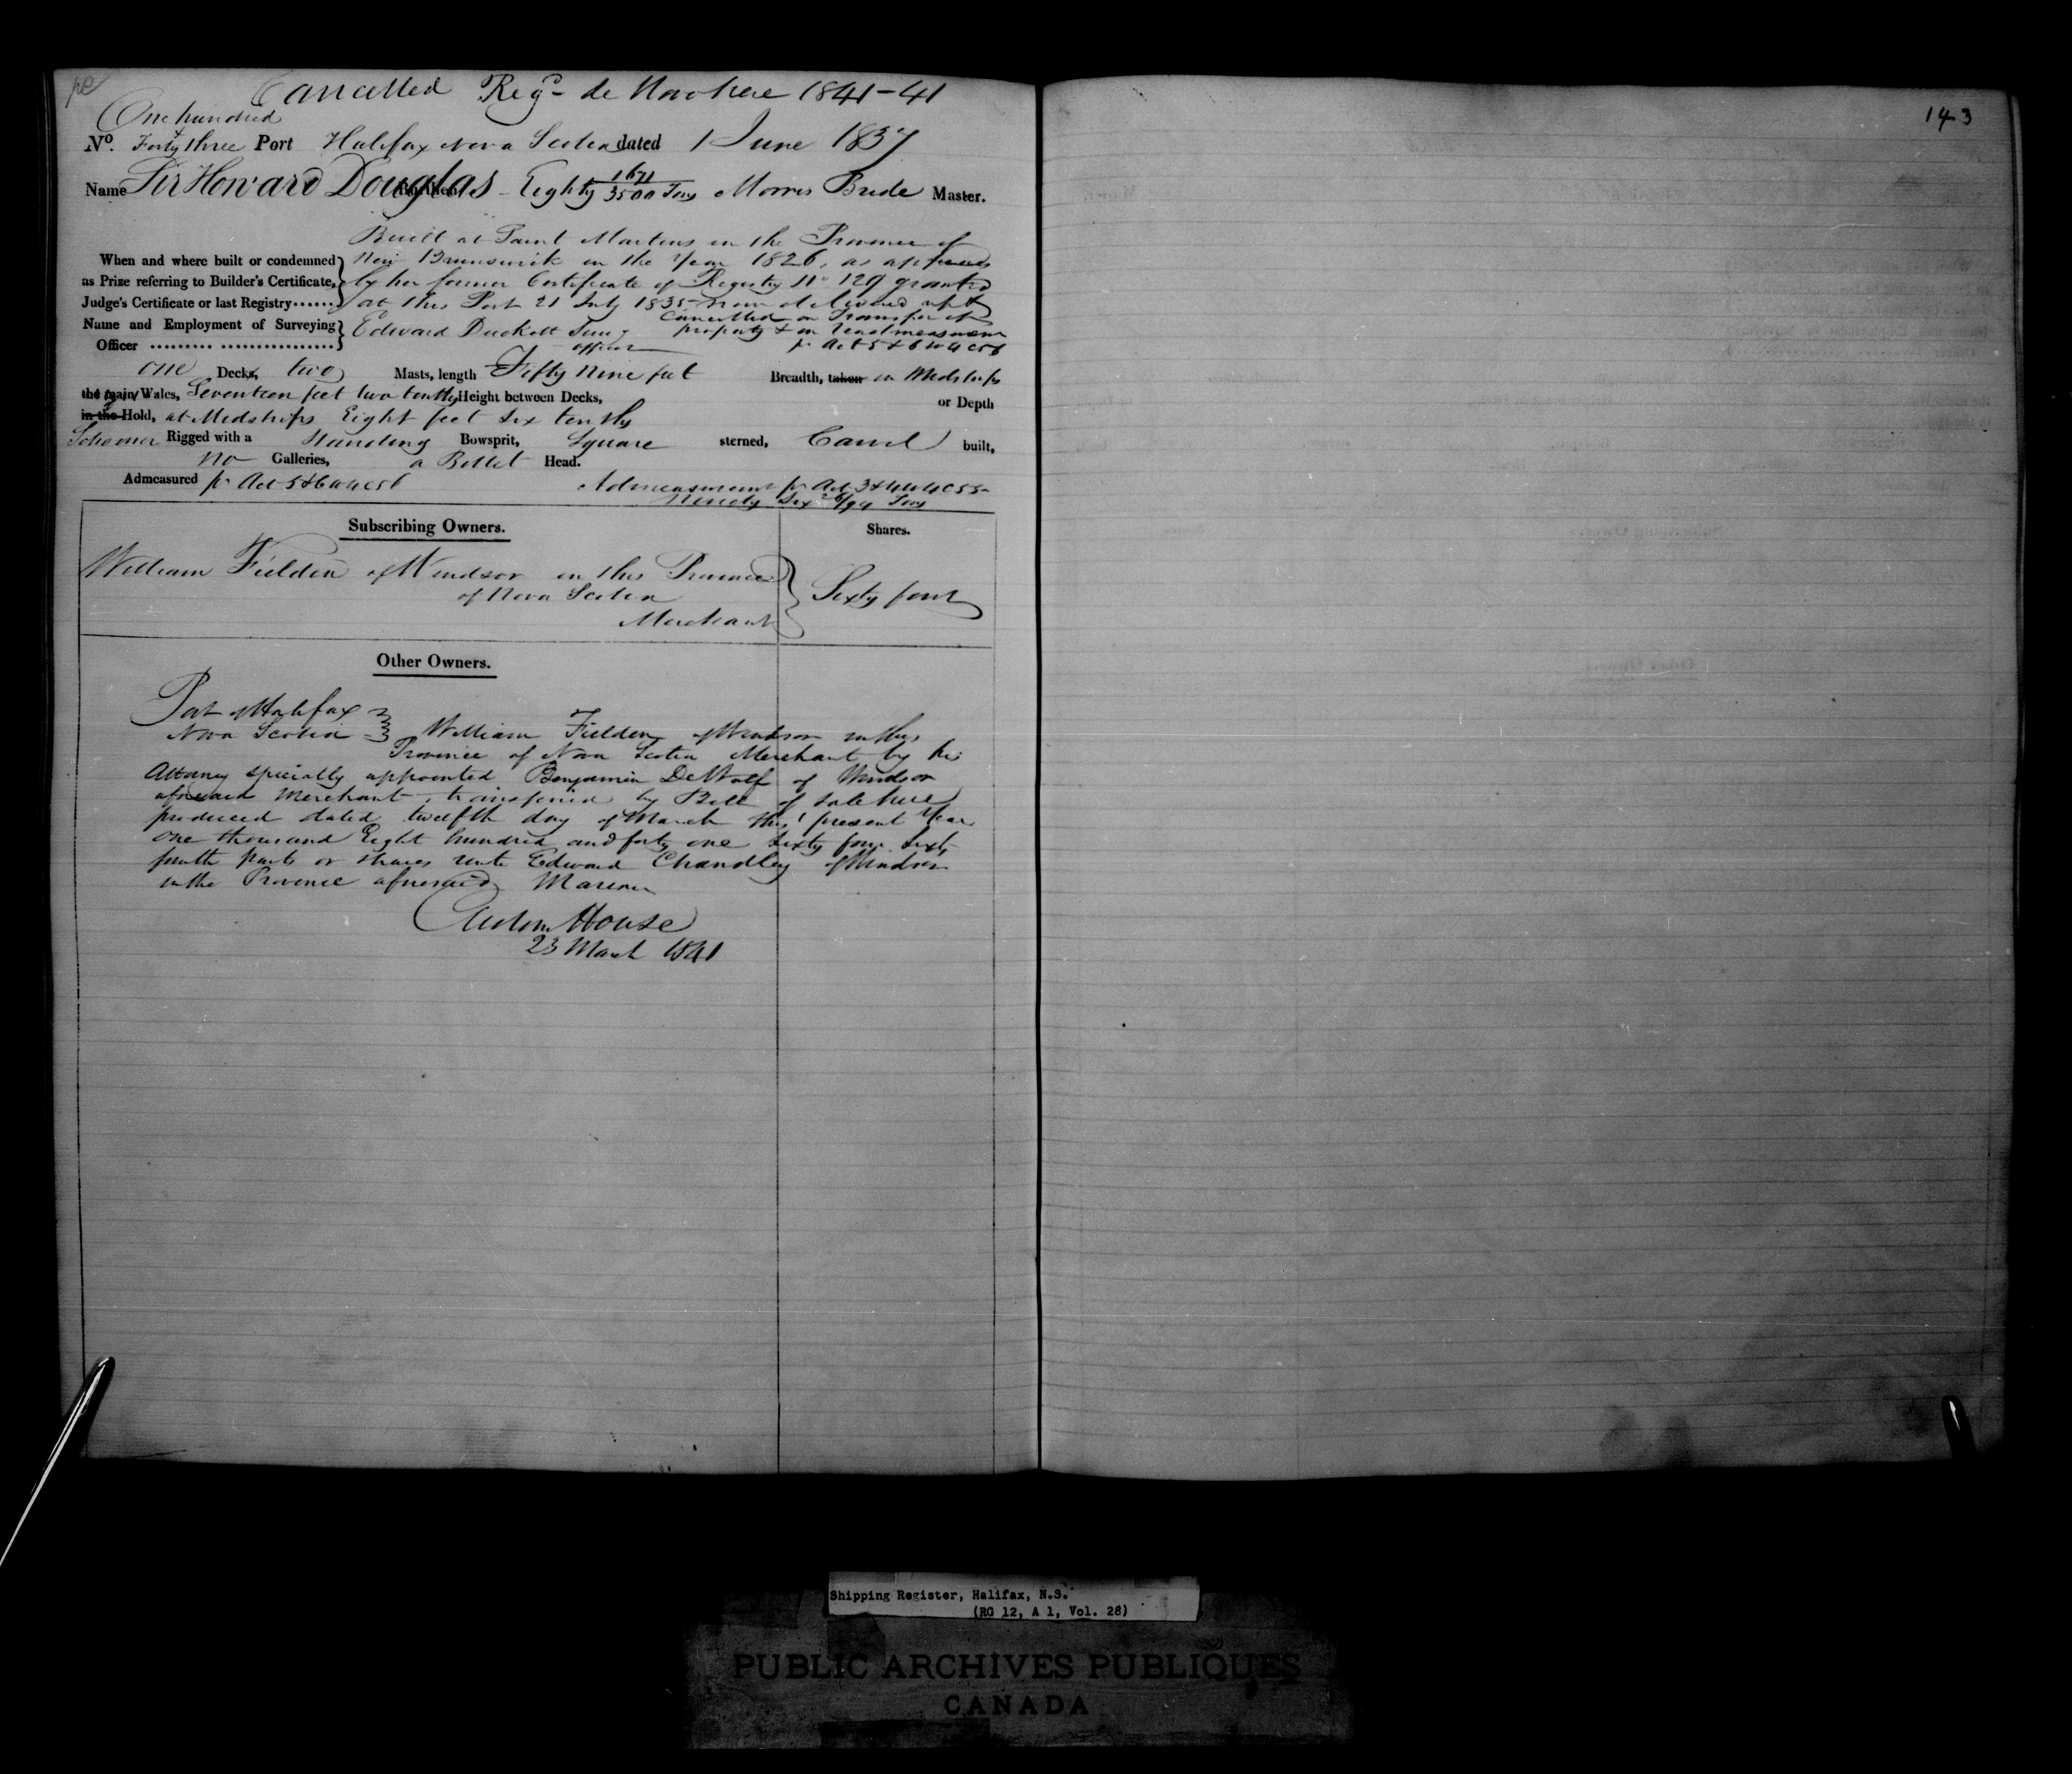 Cancelled Reg. de Novo here 1841-41
One hundred
No. Forty three Port Halifax Nova Scotia dated 1 June 1837
Name Sir Howard Douglas Burthen Eighty 1671/3500 Tons Morris Bride Master.
Built at Saint Martins in the Province of
When and where built or condemned New Brunswick in the Year 1826, as appears
as Prize referring to Builder's Certificate, by her former Certificate of Registry No 129 granted
Judge's Certificate or last Registry at this Port 21 July 1835 now delivered up &
Cancelled on Transfer of
Name and Employment of Surveying Edward Duckett property & on readmeasurement
Officer officer pr Act 5 & 6 W 4 C 56
one Decks, two Masts, length Fifty nine feet Breadth, taken in Midships
the main Wales, Seventeen feet two tenths Height between Decks, or Depth
in the Hold, at Midships Eight feet six tenths
Schooner Rigged with a Standing Bowsprit, Square sterned, Carvel built,
no Galleries, a Billet Head.
Admeasured pr Act 5 & 6 W 4 C 56 Admeasurement pr Act 3 & 4 W 4 C 55
Ninety Six /94 Tons
Subscribing Owners. Shares.
William Fielden of Windsor in this Province
of Nova Scotia Sixty four
Merchant
Other Owners.
Port of Halifax
Nova Scotia William Fielden of Windsor in this
Province of Nova Scotia Merchant by his
Attorney specially appointed Benjamin DeWolf of Windsor
aforesaid Merchant, transferred by Bill of Sale here
produced dated twelfth day of March this present Year
One thousand Eight hundred and forty one Sixty four Sixty
fourth parts or shares unto Edward Chandley of Windsor
in the Province aforesaid Mariner
Custom House
23 March 1841
143
Shipping Register, Halifax, N.S.
(RG 12, A 1, Vol. 28)
PUBLIC ARCHIVES PUBLIQUES
CANADA